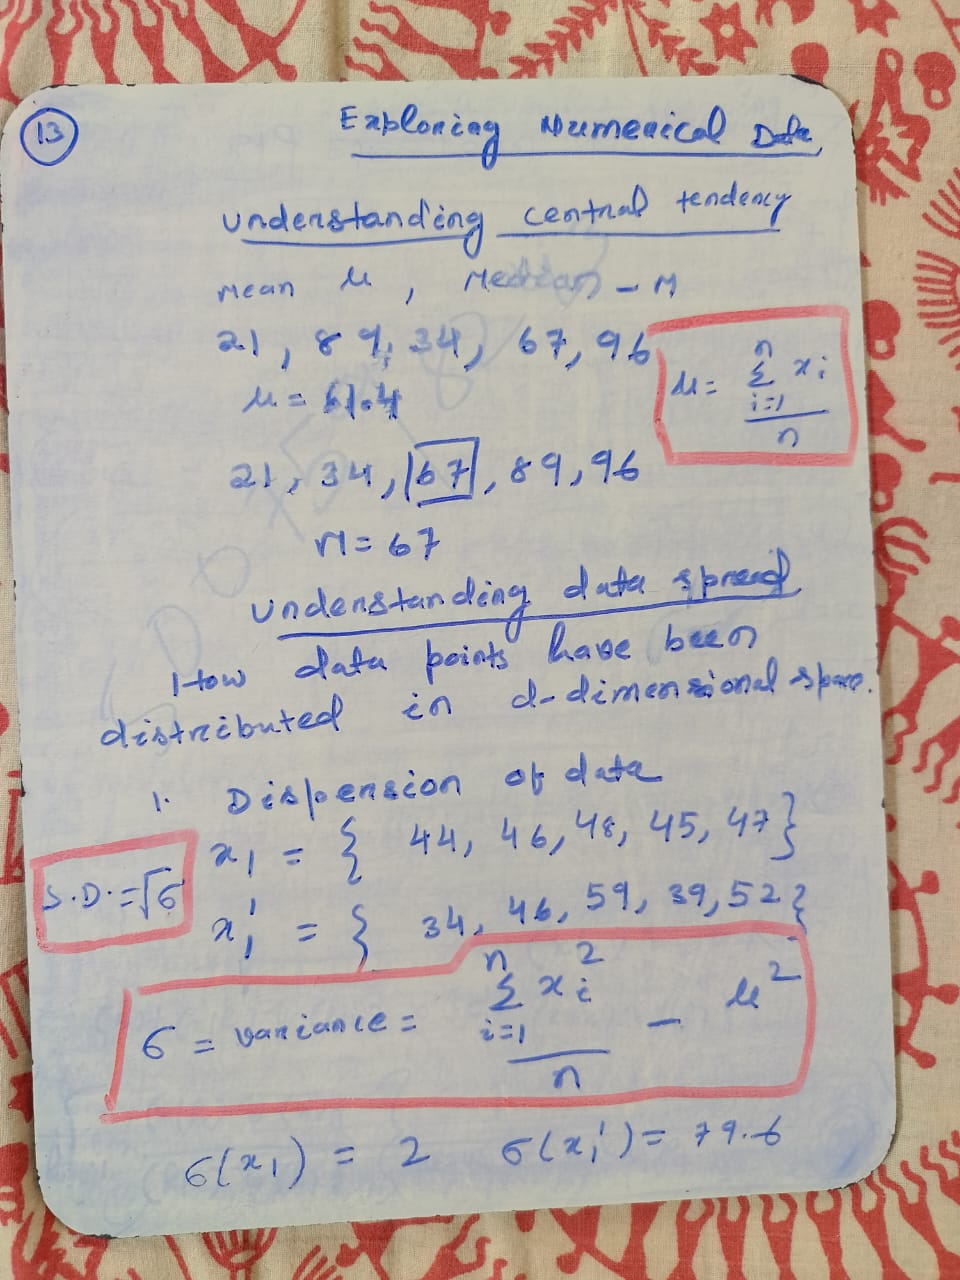 13
Exploring Numerical Data
Understanding central tendency
Mean μ, Median - M
21, 89, 34, 67, 96
μ = 61.4
μ = Σ_{i=1}^{n} x_i / n
21, 34, 67, 89, 96
M = 67
Understanding data spread
How data points have been
distributed in d-dimensional space.
1. Dispersion of data
x_1 = { 44, 46, 48, 45, 47 }
S.D. = √σ
x_1' = { 34, 46, 59, 39, 52 }
σ = variance = Σ_{i=1}^{n} x_i^2 / n - μ^2
σ(x_1) = 2 σ(x_1') = 79.6